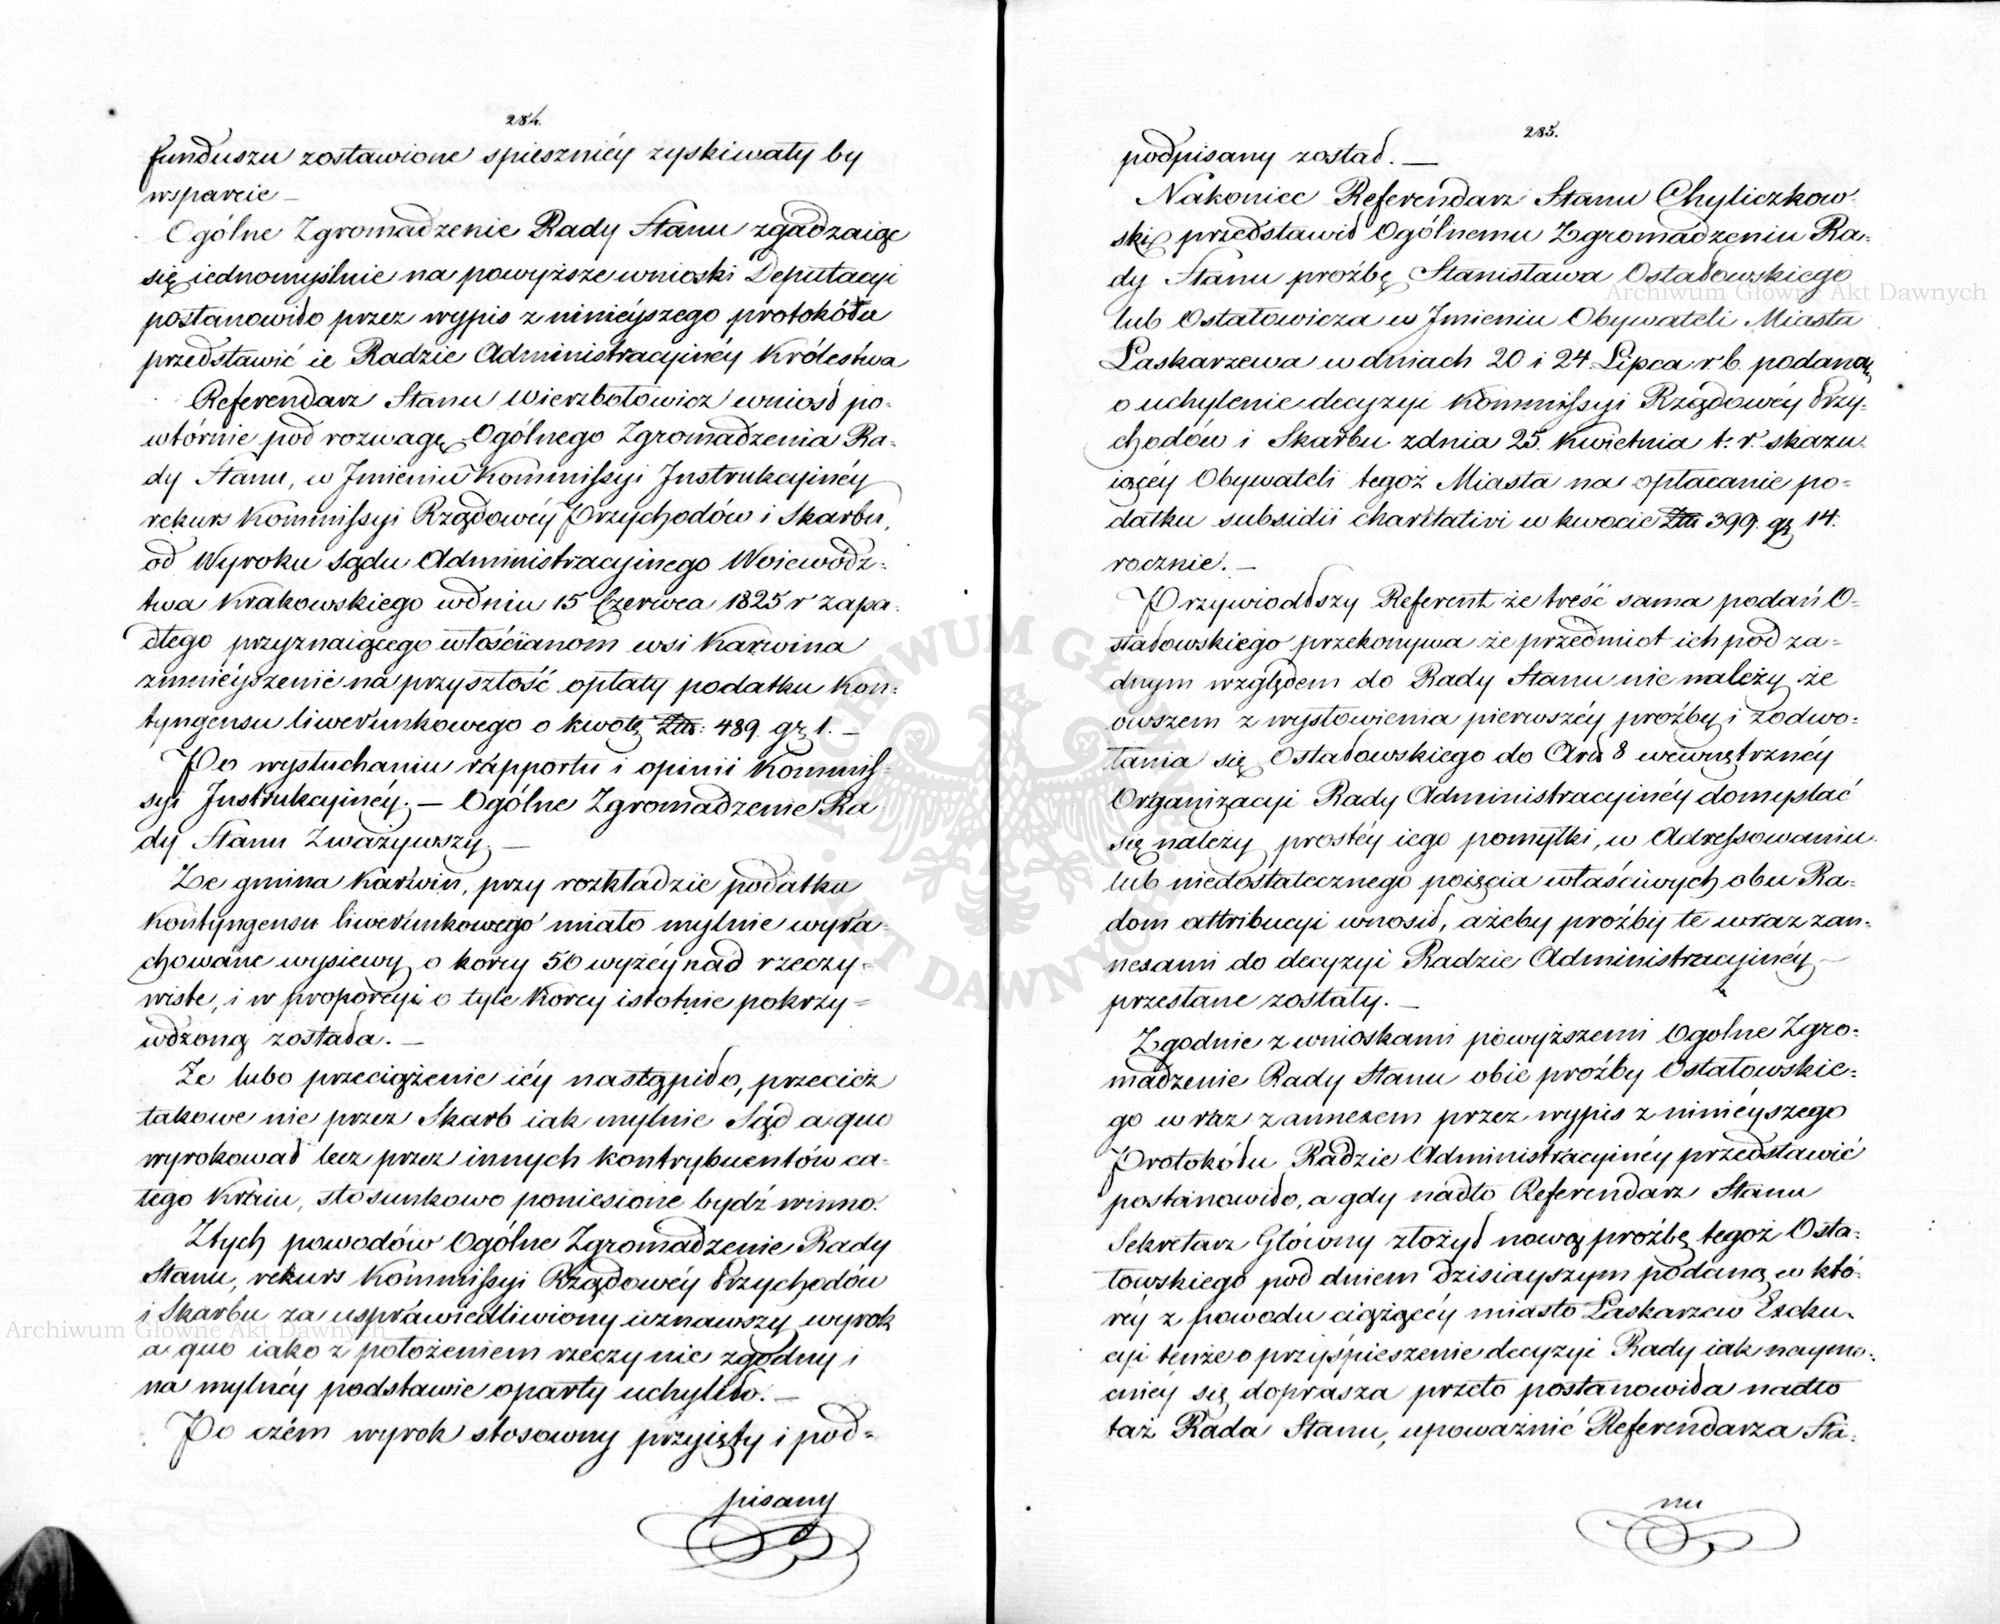 284.
funduszu zostawione spieszniéy zyskiwały by
wsparcie –
Ogólne Zgromadzenie Rady Stanu zgadzaiąc
się iednomyślnie na powyższe wnioski Deputacyi
postanowiło przez wypis z ninieyszego protokółu
przedstawić ie Radzie Administracyinéy Królestwa
Referendarz Stanu Wierzbołowicz wniósł po-
wtórnie pod rozwagę Ogólnego Zgromadzenia Ra-
dy Stanu, w Imieniu Kommissyi Instrukcyinéy
rekurs Kommissyi Rządowéy Przychodów i Skarbu,
od Wyroku Sądu Administracyinego Woiewódz-
twa Krakowskiego w dniu 15 Czerwca 1825 r zapa-
dłego przyznaiącego włościanom wsi Karwina
zmnieyszenie na przyszłość opłaty podatku Kon-
tyngensu liwerunkowego o kwotę Złł: 489. gr. 1. –
Po wysłuchaniu rapportu i opinii Kommis-
syi Instrukcyinéy. – Ogólne Zgromadzenie Ra-
dy Stanu Zważywszy. –
Że gmina Karwin, przy rozkładzie podatku
Kontyngensu liwerunkowego miała mylnie wyra-
chowane wysiewy o korcy 56 wyżéy nad rzeczy-
wiste, i w proporcyi o tyle Korcy istotnie pokrzy-
wdzoną została. –
Że lubo przeciążenie iéy nastąpiło, przecież
takowe nie przez Skarb iak mylnie Sąd a quo
wyrokował lecz przez innych kontrybuentów ca-
łego Kraiu, stosunkowo poniesione bydź winno.
Z tych powodów Ogólne Zgromadzenie Rady
Stanu, rekurs Kommissyi Rządowéy Przychodów
i Skarbu za usprawiedliwiony uznawszy wyrok
a quo iako z położeniem rzeczy nie zgodny i
na mylnéy podstawie oparty uchyliło. –
Po czém wyrok stosowny przyięty i pod-
pisany
285.
podpisany został. –
Nakoniec Referendarz Stanu Chyliczkow-
ski przedstawił Ogólnemu Zgromadzeniu Ra-
dy Stanu proźbę Stanisława Ostałowskiego
lub Ostałowicza w Imieniu Obywateli Miasta
Łaskarzewa w dniach 20 i 24 Lipca r. b. podaną,
o uchylenie decyzyi Kommissyi Rządowéy Przy-
chodów i Skarbu z dnia 25. Kwietnia t. r. skazu-
iącéy Obywateli tegoż Miasta na opłacanie po-
datku subsidii charitativi w kwocie Złł 399. gr 14.
rocznie. –
Przywiódłszy Referent że treść sama podań O-
stałowskiego przekonywa że przedmiot ich pod ża-
dnym względem do Rady Stanu nie należy, że
owszem z wysłowienia pierwszéy proźby i z odwo-
łania się Ostałowskiego do Art 8 wewnętrznéy
Organizacyi Rady Administracyinéy domyślać
się należy prostéy iego pomyłki, w Adressowaniu
lub niedostatecznego poięcia właściwych obu Ra-
dom attribucyi wnosił, ażeby proźby te wraz z an-
nexami do decyzyi Radzie Administracyinéy –
przesłane zostały. –
Zgodnie z wnioskami powyższemi Ogolne Zgro-
madzenie Rady Stanu obie proźby Ostałowskie-
go wraz z annexem przez wypis z ninieyszego
Protokółu Radzie Administracyinéy przedstawić
postanowiło, a gdy nadto Referendarz Stanu
Sekretarz Główny złożył nową proźbę tegoż Osta-
łowskiego pod dniem dzisiayszym podaną w któ-
réy z powodu ciążącéy miasto Łaskarzew Exeku-
cyi tenże o przyśpieszenie decyzyi Rady iak naymo-
cniéy się doprasza przeto postanowiła nadto
taż Rada Stanu, upoważnić Referendarza Sta-
nu
Archiwum Główne Akt Dawnych
Archiwum Główne Akt Dawnych
ARCHIWUM GŁÓWNE AKT DAWNYCH